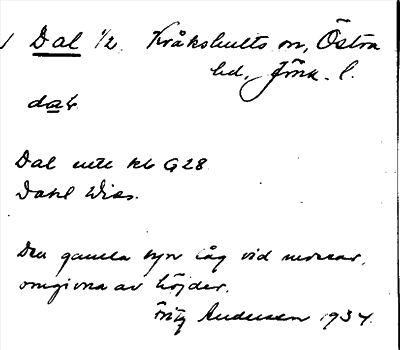 Dal 1/2. Kråkshults sn, Östra
hd, Jönk. l.
Dal
Dahl Wies.
Den gamla byn låg vid mossar,
omgivna av höjder.
Fritz Andersen 1934.